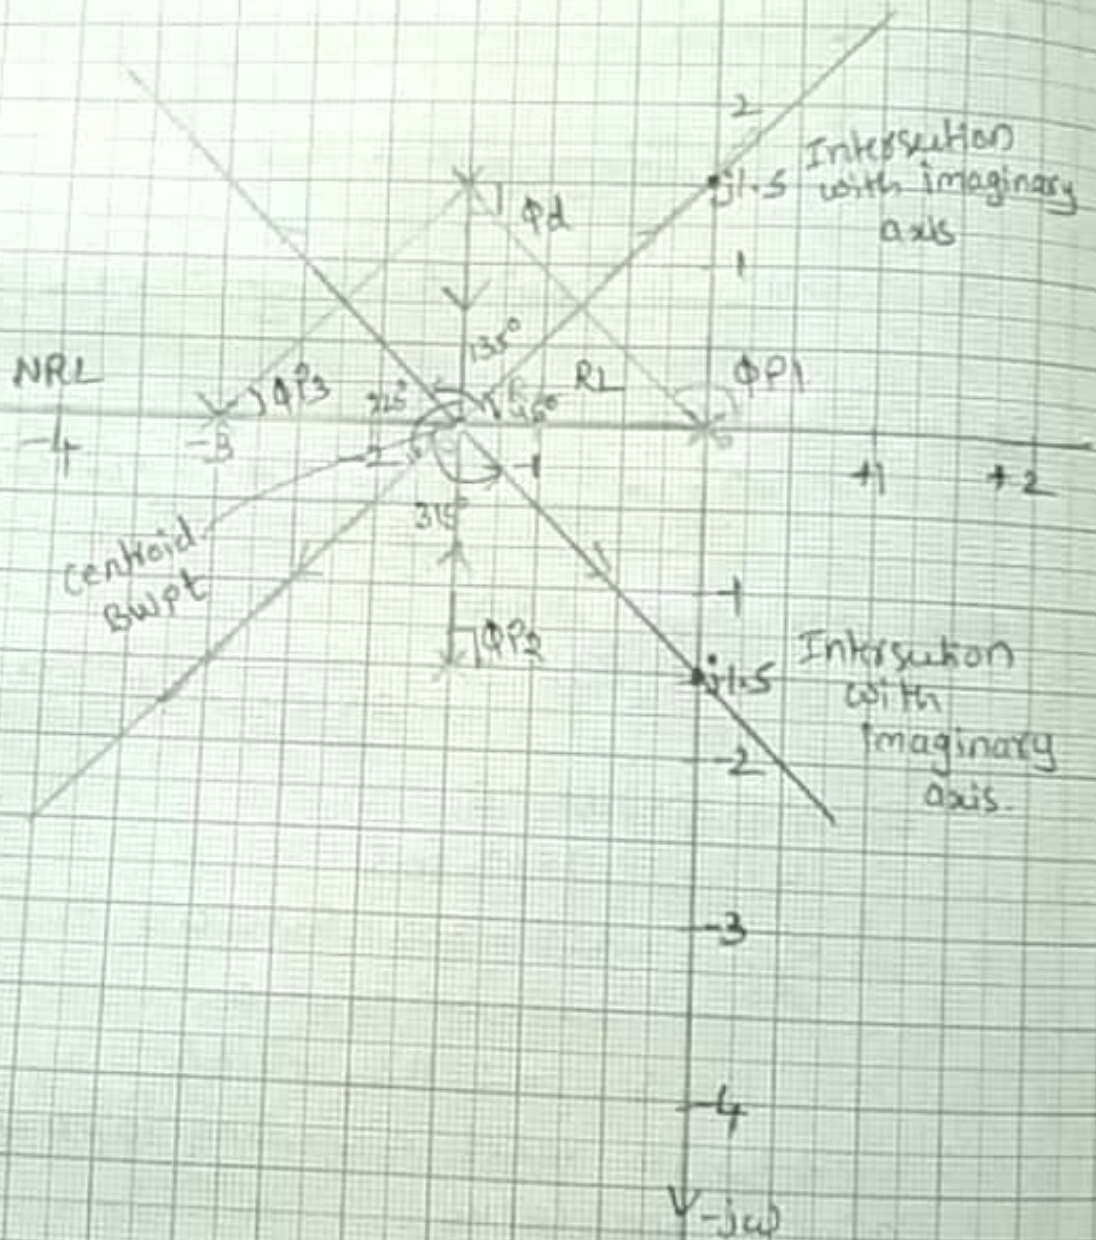 2
Intersution
with imaginary
axis
j1.5
ϕd
1
135°
NRL
ϕP3
225°
45°
RL
ϕP1
-4
-3
-2
-1
+1
+2
315°
centroid
BWPt
-1
ϕP2
j1.5
Intersution
with
imaginary
axis.
-2
-3
-4
-jω